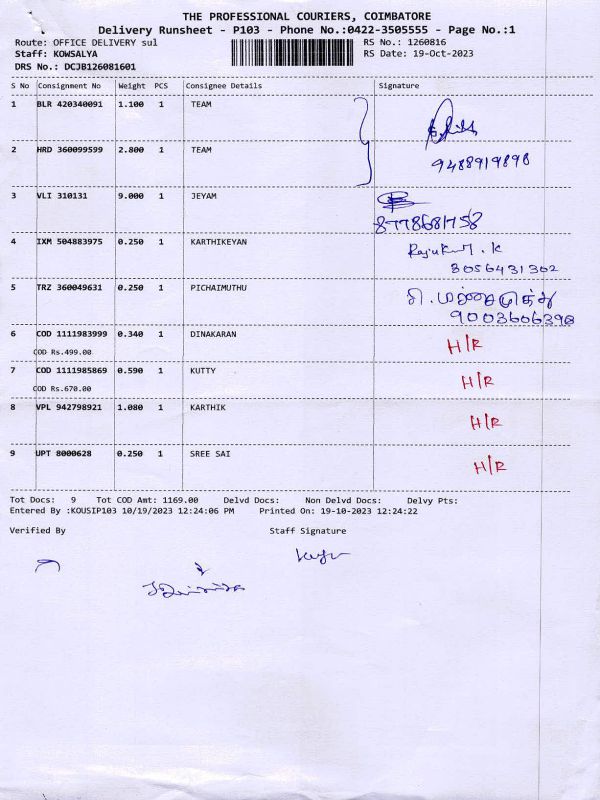 THE PROFESSIONAL COURIERS, COIMBATORE
Delivery Runsheet - P103 - Phone No.:0422-3505555 - Page No.:1
Route: OFFICE DELIVERY sul RS No.: 1260816
Staff: KOWSALYA RS Date: 19-Oct-2023
DRS No.: DCJB126081601
S No Consignment No Weight PCS Consignee Details Signature
1 BLR 420340091 1.100 1 TEAM
2 HRD 360099599 2.800 1 TEAM 9488919898
3 VLI 310131 9.000 1 JEYAM
8778681758
4 IXM 504883975 0.250 1 KARTHIKEYAN Rajukumar. K
8056431302
5 TRZ 360049631 0.250 1 PICHAIMUTHU
9003606398
6 COD 1111983999 0.340 1 DINAKARAN H/R
COD Rs.499.00
7 COD 1111985869 0.590 1 KUTTY H/R
COD Rs.670.00
8 VPL 942798921 1.080 1 KARTHIK H/R
9 UPT 8000628 0.250 1 SREE SAI H/R
Tot Docs: 9 Tot COD Amt: 1169.00 Delvd Docs: Non Delvd Docs: Delvy Pts:
Entered By :KOUSIP103 10/19/2023 12:24:06 PM Printed On: 19-10-2023 12:24:22
Verified By Staff Signature